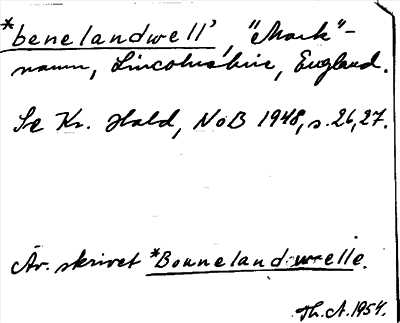 *benelandwell', "Mark"-
namn, Lincolnshire, England.
Se Kr. Hald, NoB 1948, s. 26, 27.
Äv. skrivet *Bounelandwelle.
Th. A. 1954.